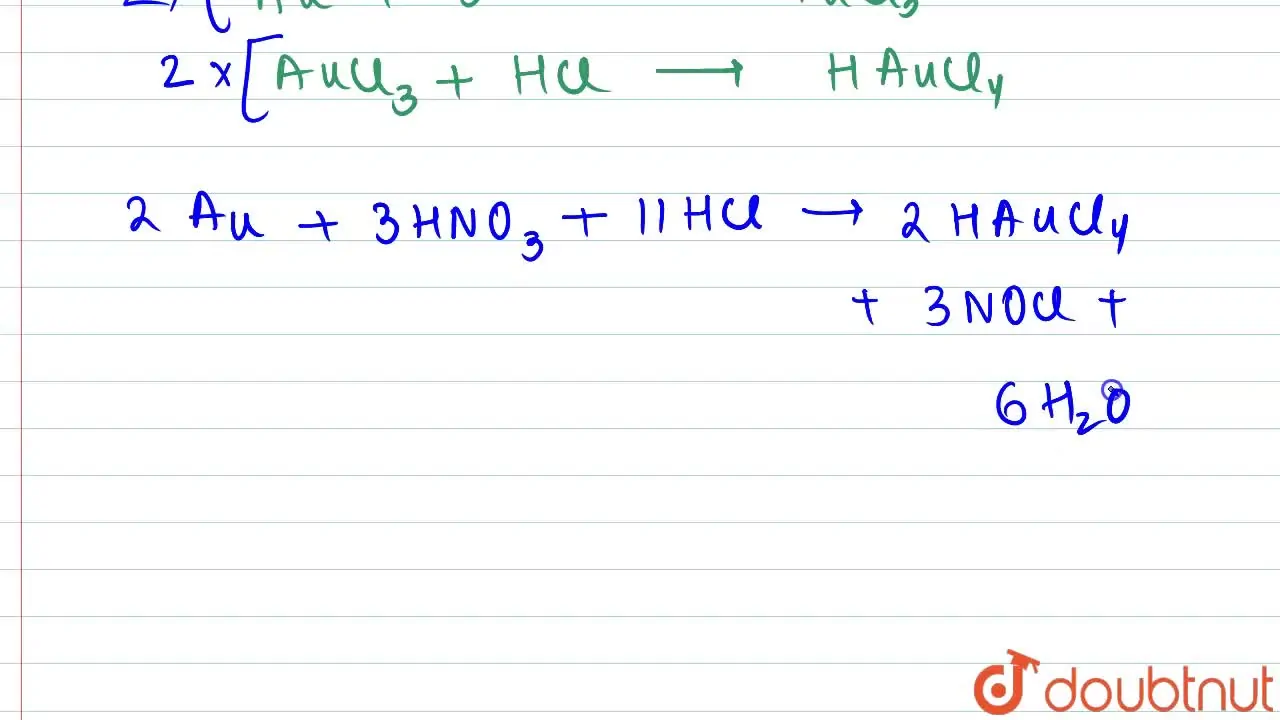 2 × [ AuCl3 + HCl → HAuCl4
2 Au + 3HNO3 + 11HCl → 2 HAuCl4
+ 3NOCl +
6H2O
doubtnut